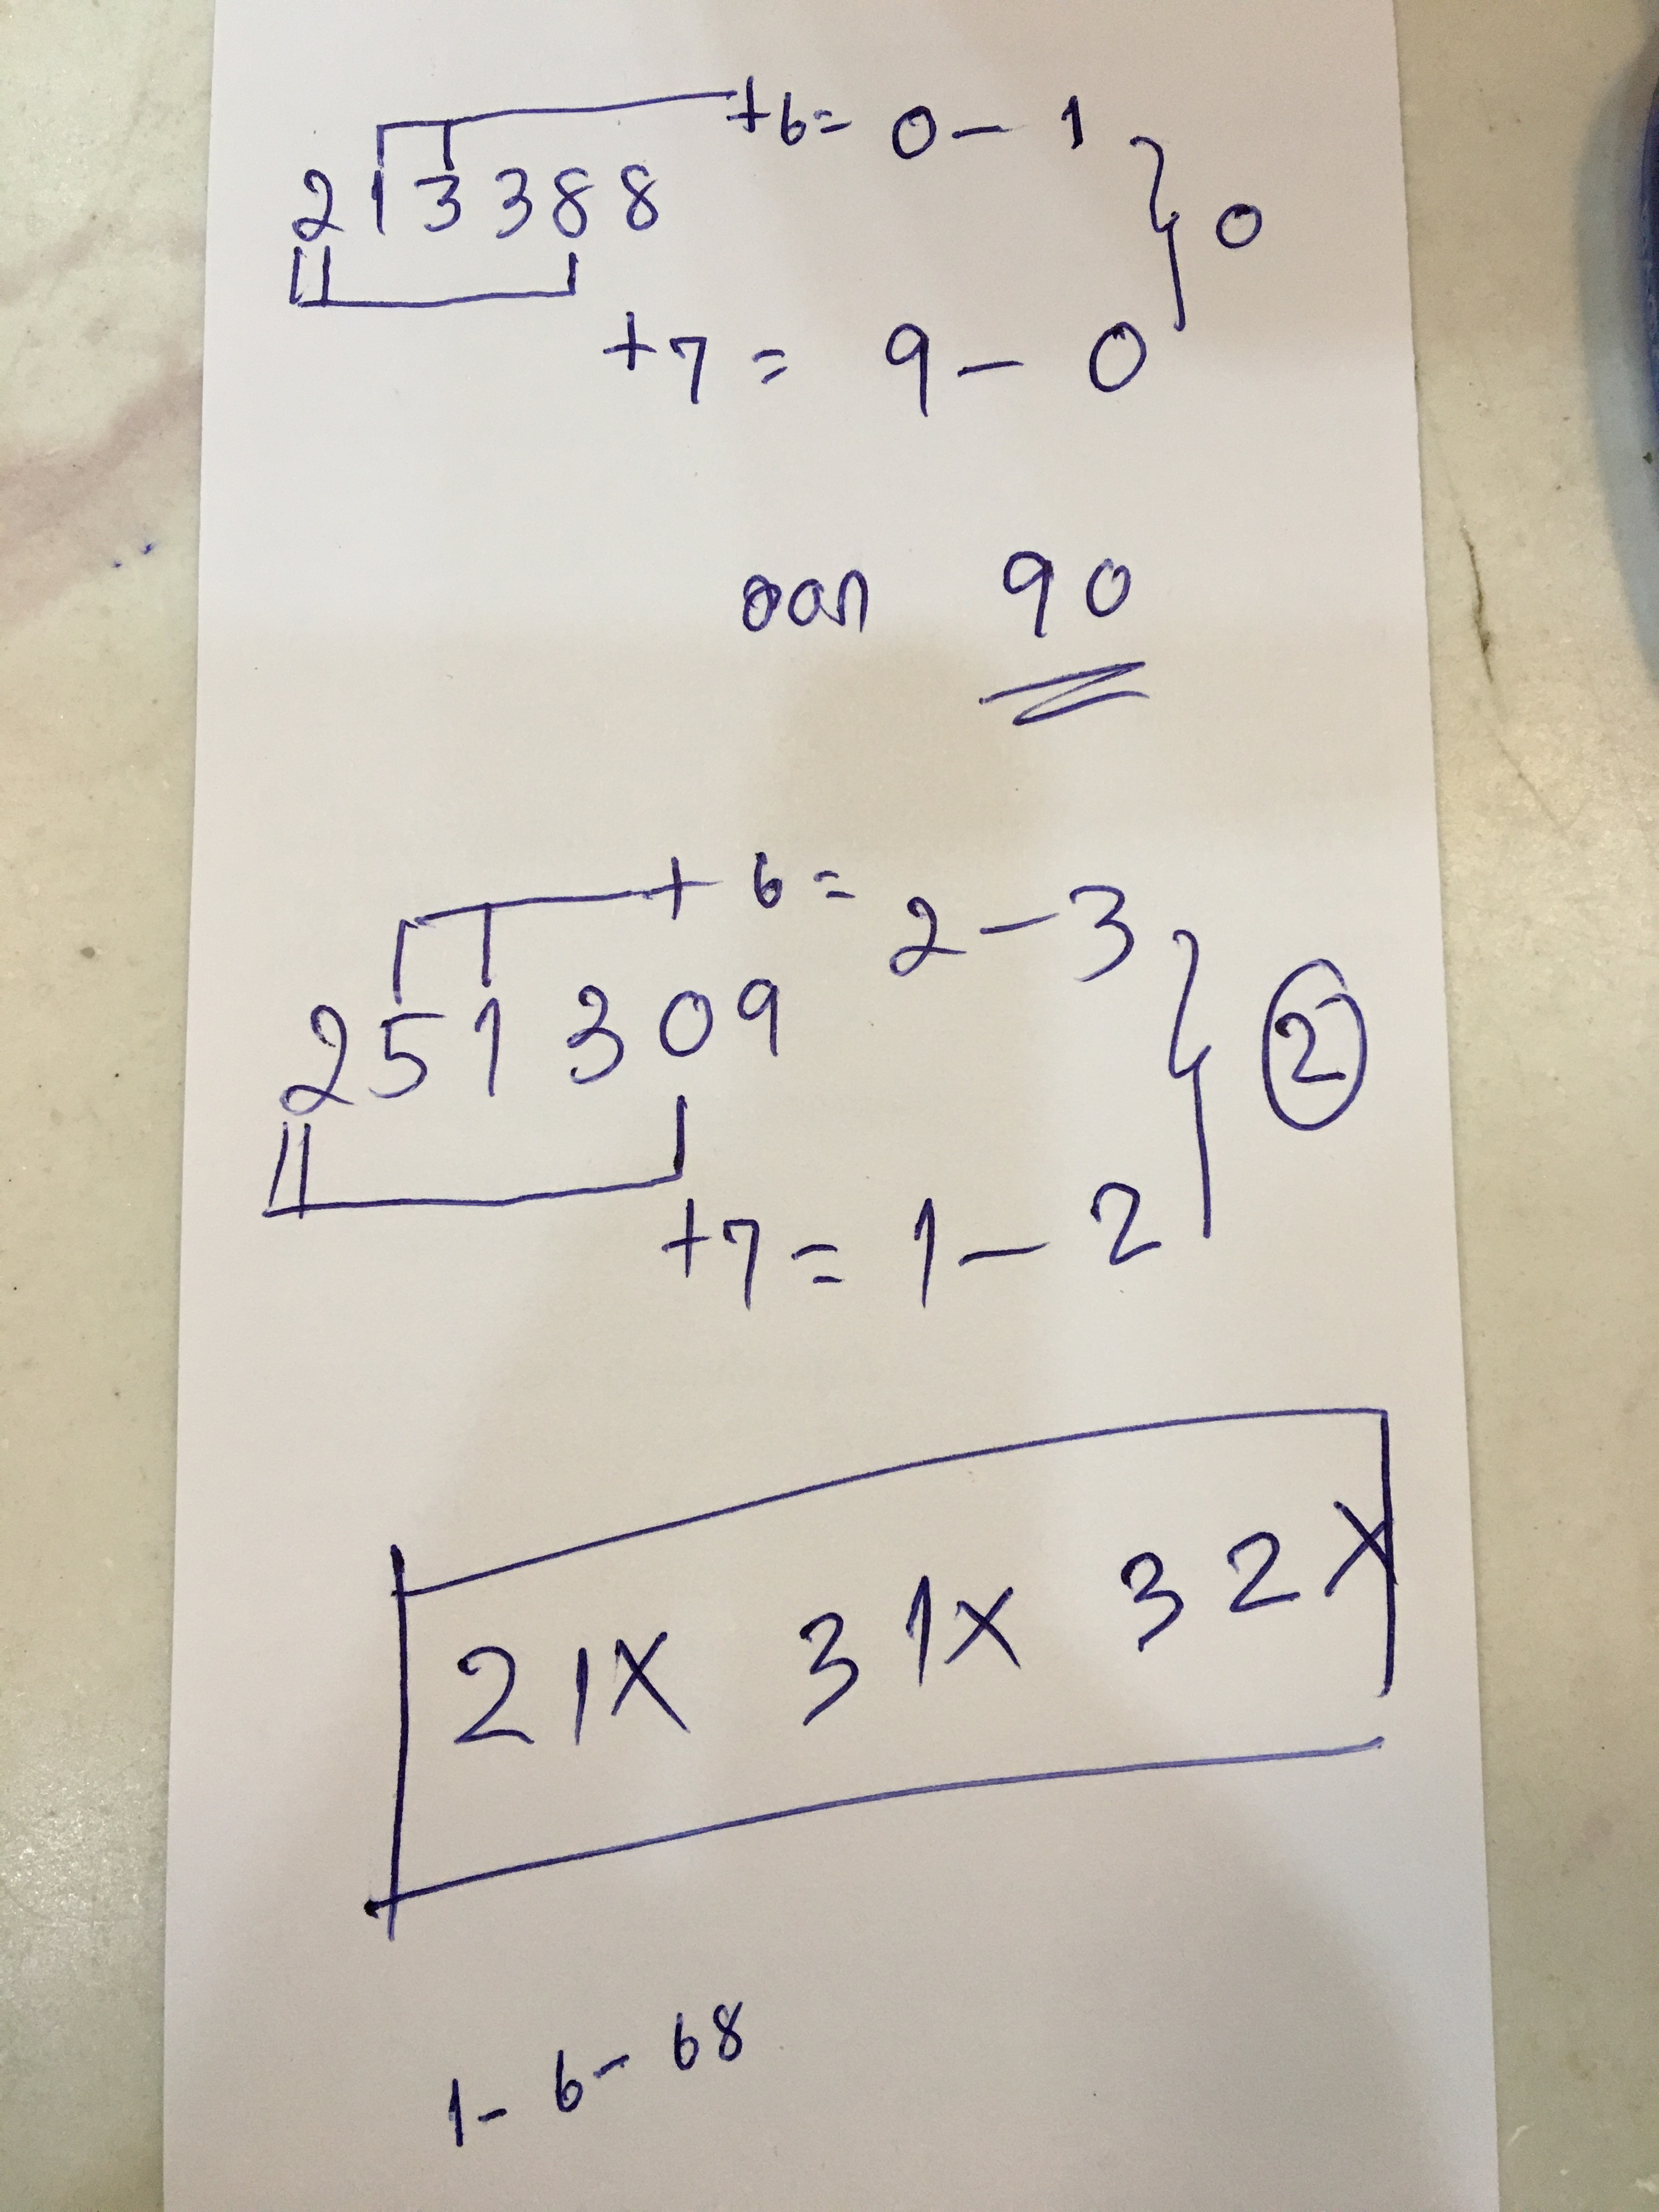 +6= 0-1
213388 0
+7= 9-0
ออก 90
+6= 2-3
251309 2
+7=1-2
21X 31X 32X
1-6-68